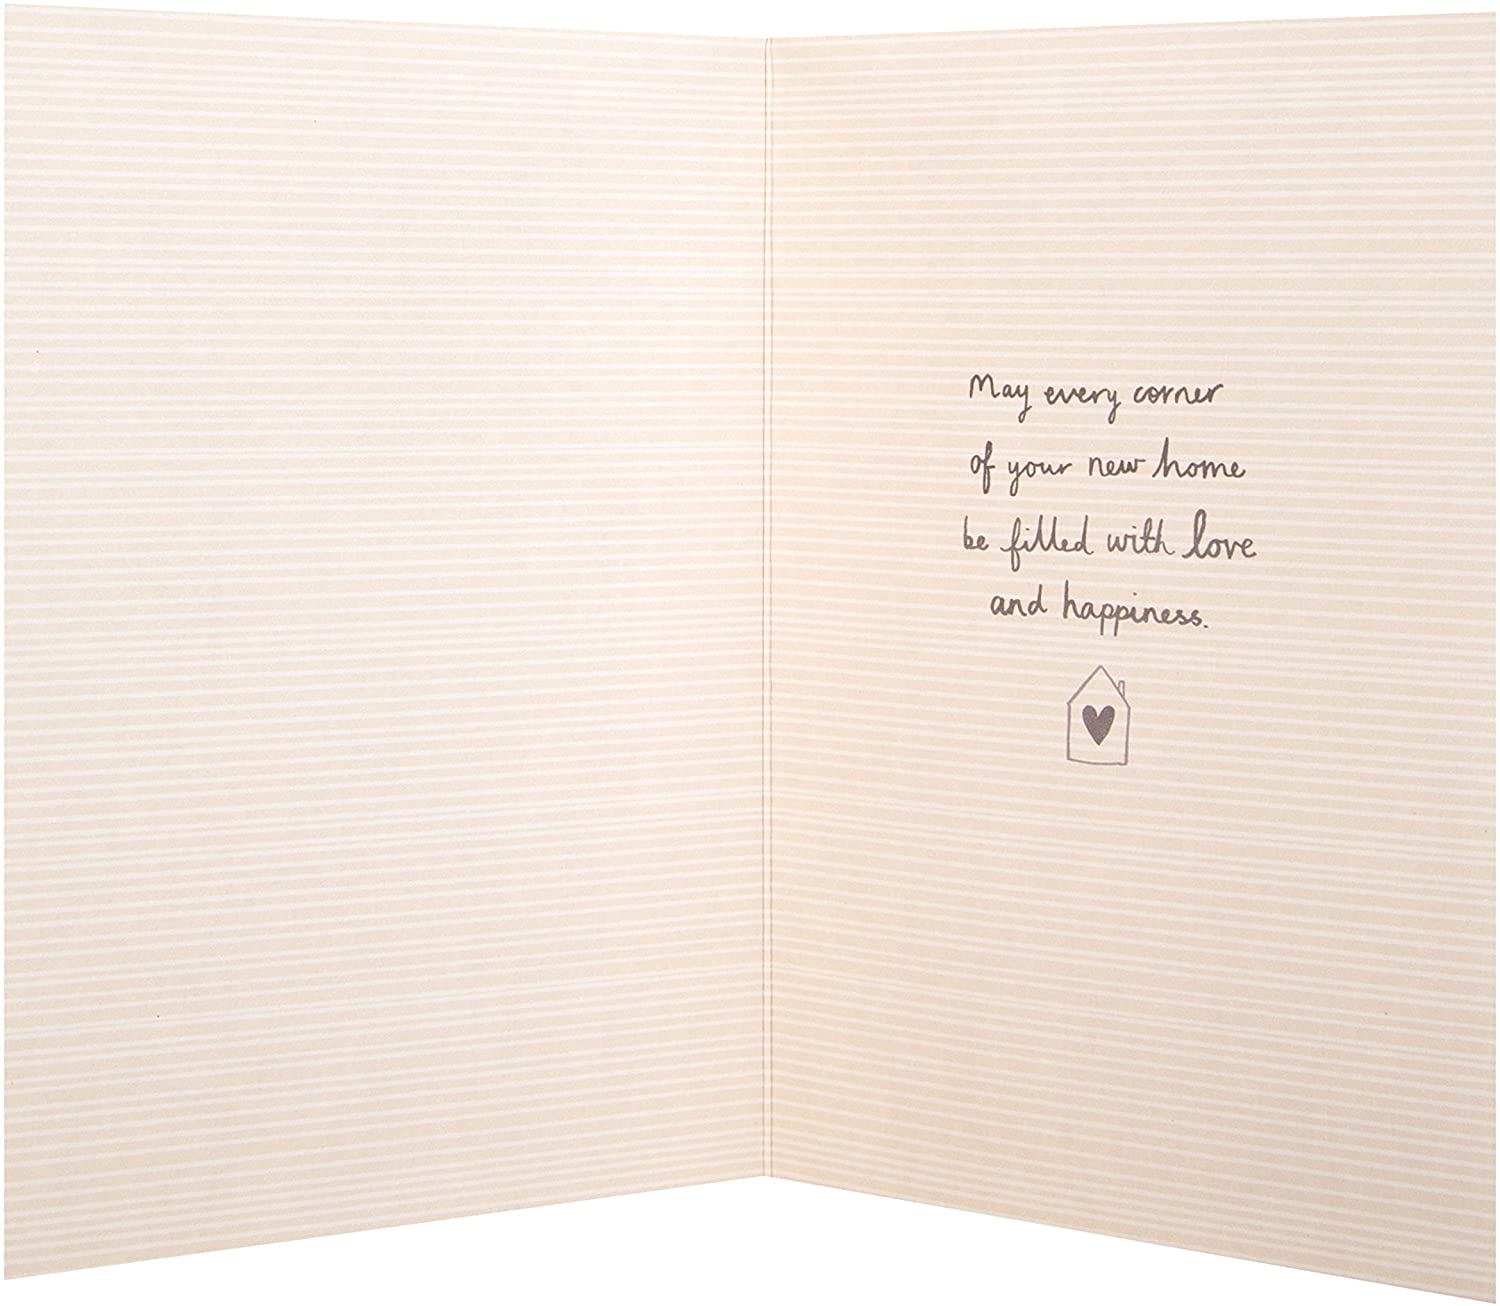 May every corner
of your new home
be filled with love
and happiness.